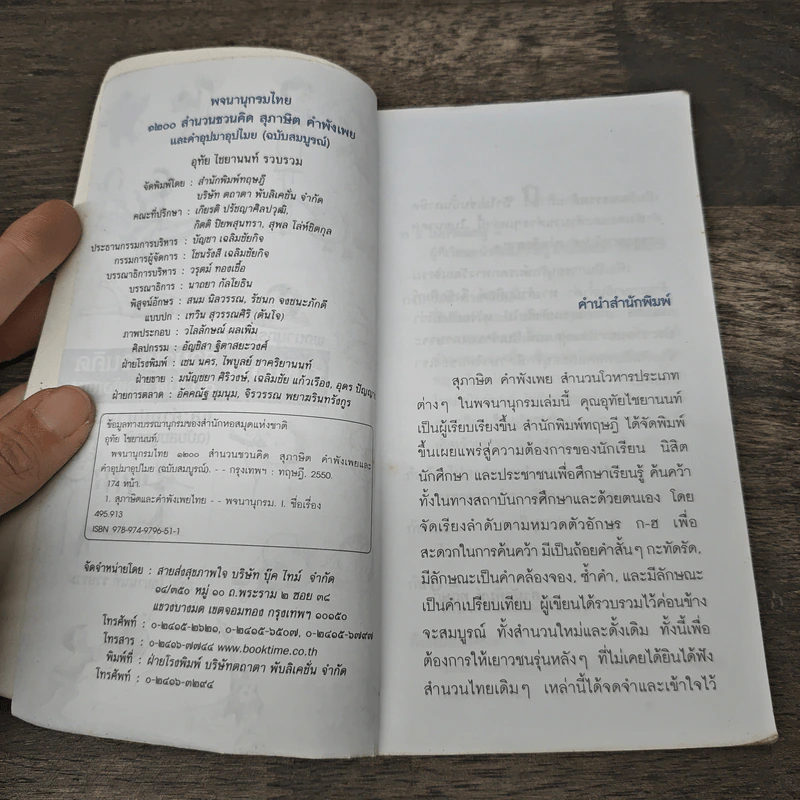 พจนานุกรมไทย
๑๒๐๐ สำนวนชวนคิด สุภาษิต คำพังเพย
และคำอุปมาอุปไมย (ฉบับสมบูรณ์)
อุทัย ไชยานนท์ รวบรวม
จัดพิมพ์โดย : สำนักพิมพ์ทฤษฎี
บริษัท ตถาตา พับลิเคชั่น จำกัด
คณะที่ปรึกษา : เกียรติ ปรัชญาศิลปวุฒิ,
กิตติ ปิยพสุนทรา, สุพล โล่ห์ชิตกุล
ประธานกรรมการบริหาร : บัญชา เฉลิมชัยกิจ
กรรมการผู้จัดการ : โชนรังสี เฉลิมชัยกิจ
บรรณาธิการบริหาร : วรุตม์ ทองเชื้อ
บรรณาธิการ : นาถยา กัลโยธิน
พิสูจน์อักษร : สนม นิลวรรณ, รัชนก จงชนะภักดี
แบบปก : เทวัน สุวรรณศิริ (ต้นใจ)
ภาพประกอบ : วไลลักษณ์ ผลเพิ่ม
ศิลปกรรม : อัญชิสา ฐิตาสยะวงศ์
ฝ่ายโรงพิมพ์ : เชน นคร, ไพบูลย์ ชาคริยานนท์
ฝ่ายขาย : มนัญชยา ศิริวงษ์, เฉลิมชัย แก้วเรือง, อุดร ปัญญา
ฝ่ายการตลาด : อัคคณัฐ ชุมนุม, จิรวรรณ พยาฆรินทรังกูร
ข้อมูลทางบรรณานุกรมของสำนักหอสมุดแห่งชาติ
อุทัย ไชยานนท์.
พจนานุกรมไทย ๑๒๐๐ สำนวนชวนคิด สุภาษิต คำพังเพยและ
คำอุปมาอุปไมย (ฉบับสมบูรณ์). - - กรุงเทพฯ : ทฤษฎี, 2550.
174 หน้า.
1. สุภาษิตและคำพังเพยไทย - - พจนานุกรม. I. ชื่อเรื่อง
495.913
ISBN 978-974-9796-51-1
จัดจำหน่ายโดย : สายส่งสุขภาพใจ บริษัท บุ๊ค ไทม์ จำกัด
๑๔/๓๕๐ หมู่ ๑๐ ถ.พระราม ๒ ซอย ๓๘
แขวงบางมด เขตจอมทอง กรุงเทพฯ ๑๐๑๕๐
โทรศัพท์ : ๐-๒๔๑๕-๒๖๒๑, ๐-๒๔๑๕-๖๕๐๗, ๐-๒๔๑๕-๖๗๙๗
โทรสาร : ๐-๒๔๑๖-๗๗๔๔ www.booktime.co.th
พิมพ์ที่ : ฝ่ายโรงพิมพ์ บริษัทตถาตา พับลิเคชั่น จำกัด
โทรศัพท์ : ๐-๒๔๑๖-๓๒๙๔
คำนำสำนักพิมพ์
สุภาษิต คำพังเพย สำนวนโวหารประเภท
ต่างๆ ในพจนานุกรมเล่มนี้ คุณอุทัยไชยานนท์
เป็นผู้เรียบเรียงขึ้น สำนักพิมพ์ทฤษฎี ได้จัดพิมพ์
ขึ้นเผยแพร่สู่ความต้องการของนักเรียน นิสิต
นักศึกษา และประชาชนเพื่อศึกษาเรียนรู้ ค้นคว้า
ทั้งในทางสถาบันการศึกษาและด้วยตนเอง โดย
จัดเรียงลำดับตามหมวดตัวอักษร ก-ฮ เพื่อ
สะดวกในการค้นคว้า มีเป็นถ้อยคำสั้นๆ กะทัดรัด,
มีลักษณะเป็นคำคล้องจอง, ซ้ำคำ, และมีลักษณะ
เป็นคำเปรียบเทียบ ผู้เขียนได้รวบรวมไว้ค่อนข้าง
จะสมบูรณ์ ทั้งสำนวนใหม่และดั้งเดิม ทั้งนี้เพื่อ
ต้องการให้เยาวชนรุ่นหลังๆ ที่ไม่เคยได้ยินได้ฟัง
สำนวนไทยเดิมๆ เหล่านี้ได้จดจำและเข้าใจไว้